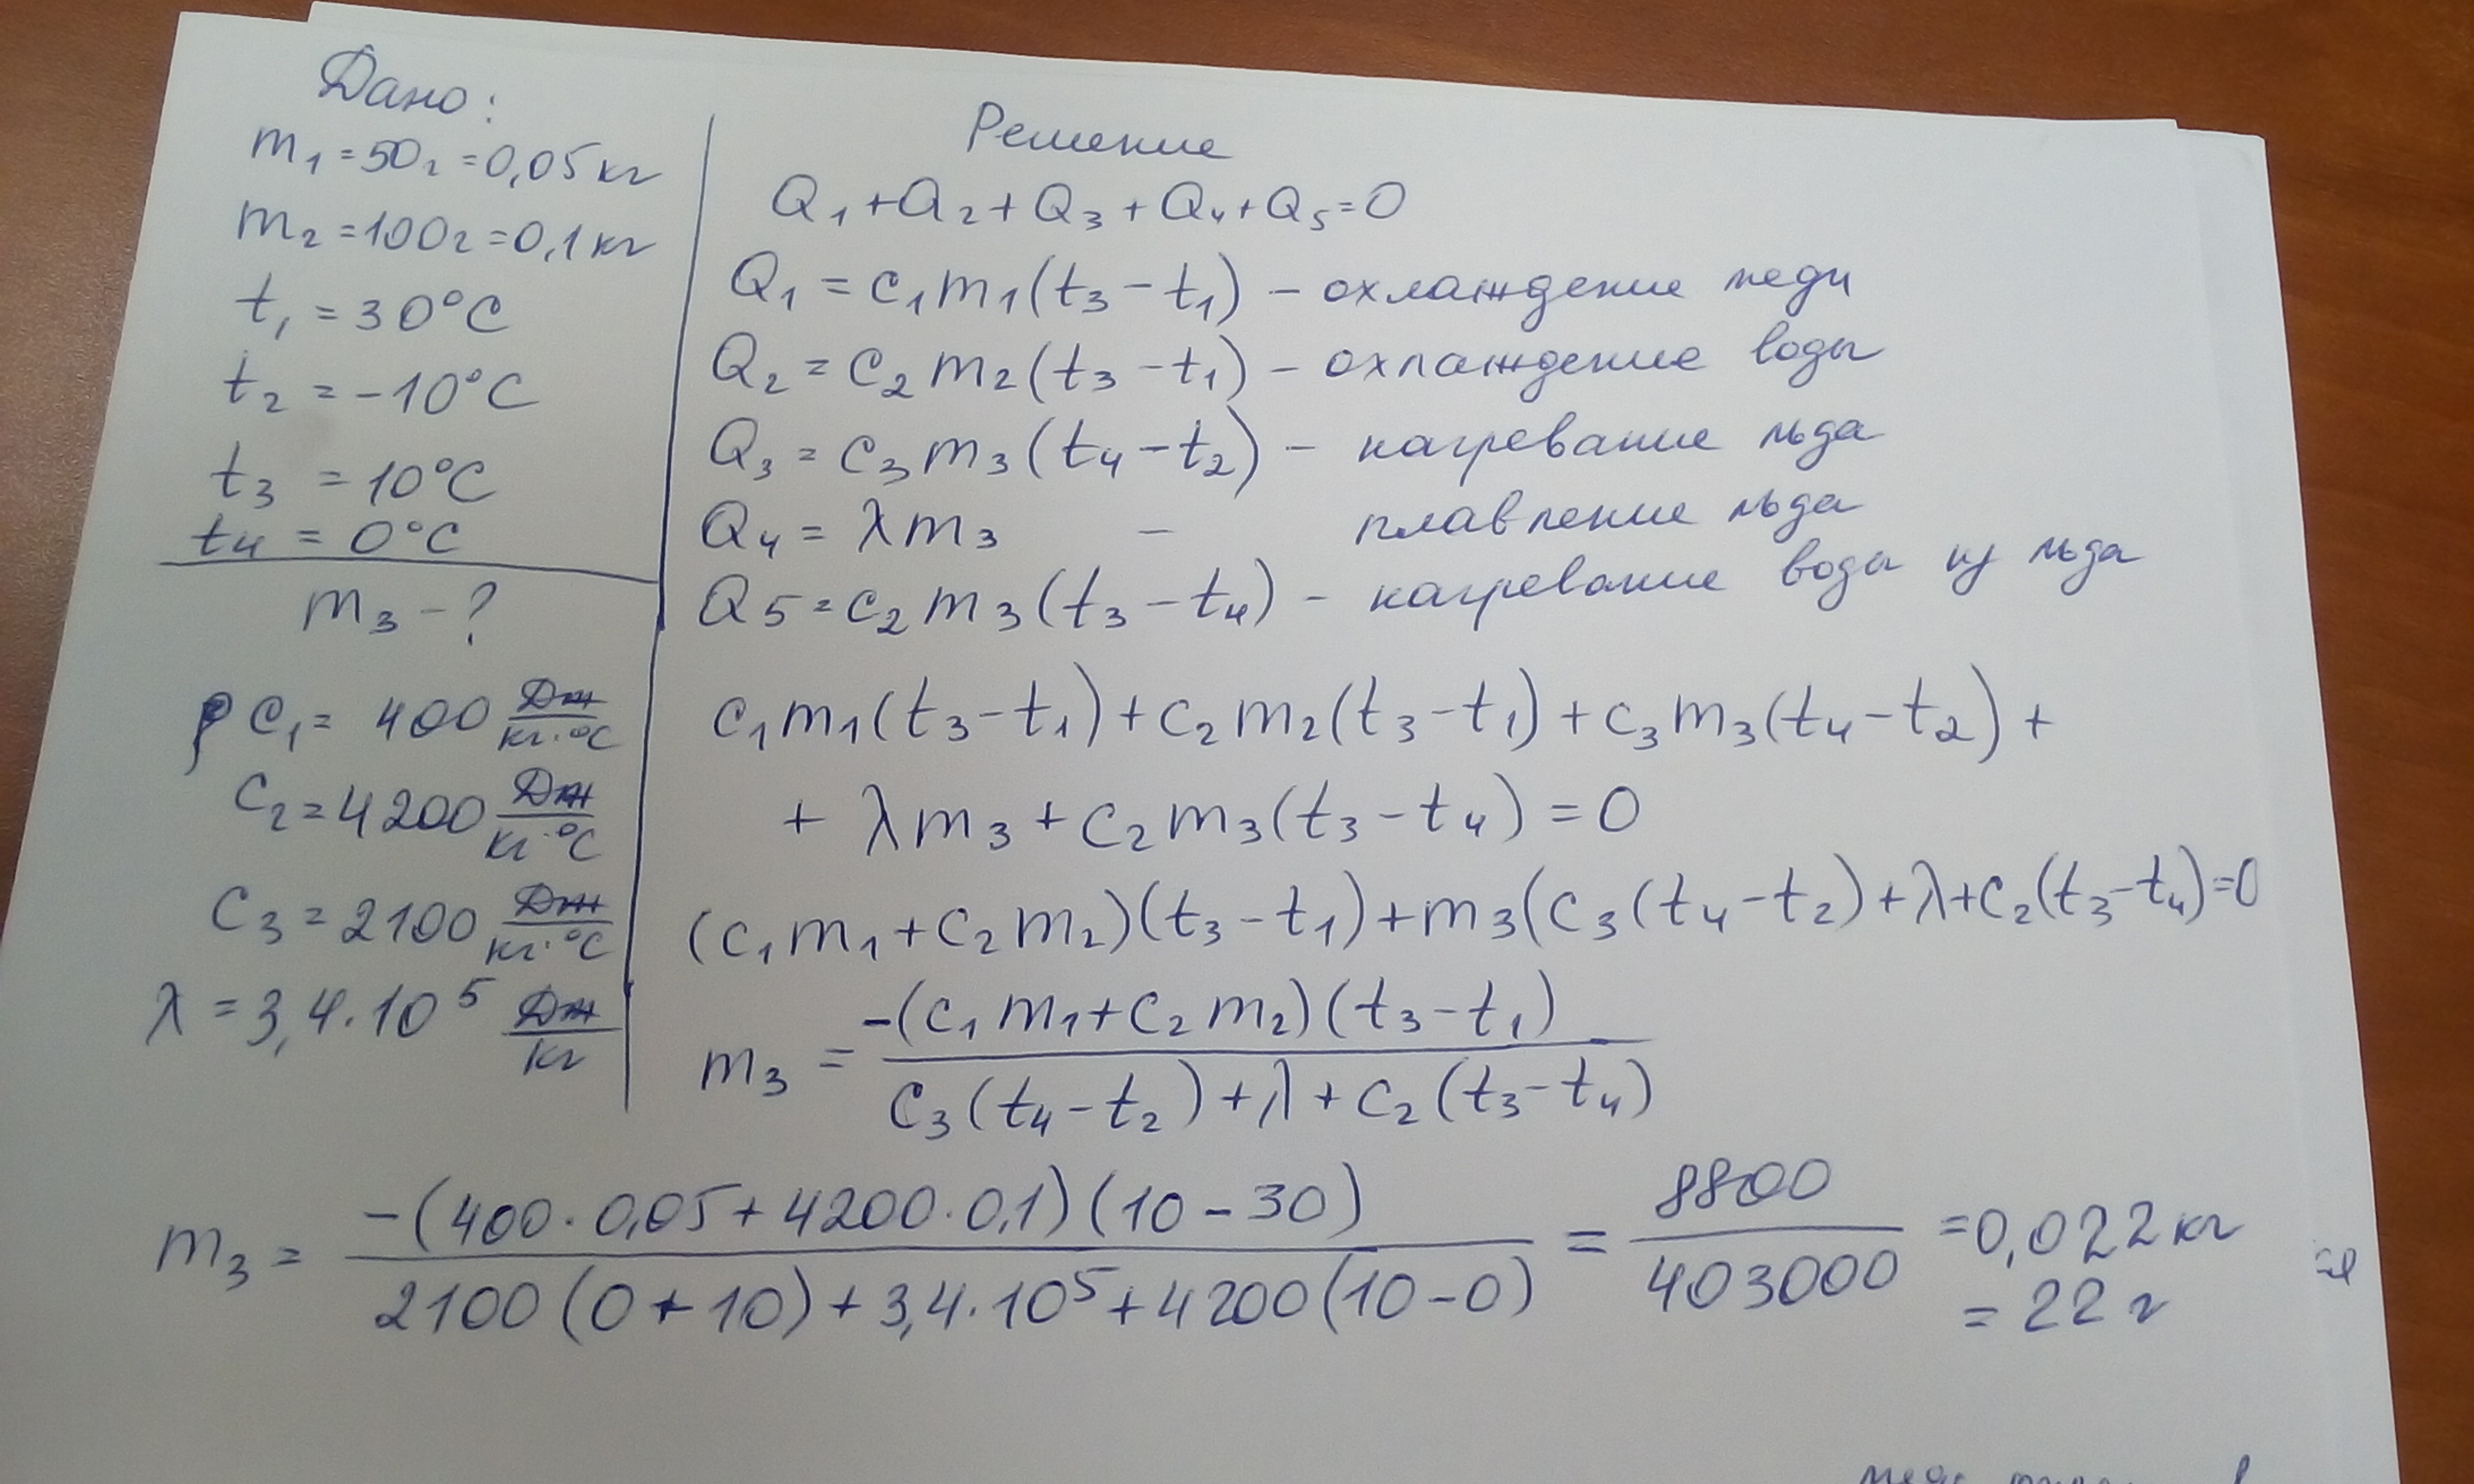 Дано:
m₁ = 50г = 0,05 кг
m₂ = 100г = 0,1 кг
t₁ = 30°C
t₂ = -10°C
t₃ = 10°C
t₄ = 0°C
m₃ - ?
c₁ = 400 Дж/кг·°C
c₂ = 4200 Дж/кг·°C
c₃ = 2100 Дж/кг·°C
λ = 3,4·10⁵ Дж/кг
Решение
Q₁ + Q₂ + Q₃ + Q₄ + Q₅ = 0
Q₁ = c₁m₁(t₃ - t₁) - охлаждение меди
Q₂ = c₂m₂(t₃ - t₁) - охлаждение воды
Q₃ = c₃m₃(t₄ - t₂) - нагревание льда
Q₄ = λm₃ - плавление льда
Q₅ = c₂m₃(t₃ - t₄) - нагревание воды из льда
c₁m₁(t₃ - t₁) + c₂m₂(t₃ - t₁) + c₃m₃(t₄ - t₂) +
+ λm₃ + c₂m₃(t₃ - t₄) = 0
(c₁m₁ + c₂m₂)(t₃ - t₁) + m₃(c₃(t₄ - t₂) + λ + c₂(t₃ - t₄) = 0
m₃ = -(c₁m₁ + c₂m₂)(t₃ - t₁) / c₃(t₄ - t₂) + λ + c₂(t₃ - t₄)
m₃ = -(400·0,05 + 4200·0,1)(10 - 30) / 2100(0 + 10) + 3,4·10⁵ + 4200(10 - 0) = 8800 / 403000 = 0,022 кг
= 22 г